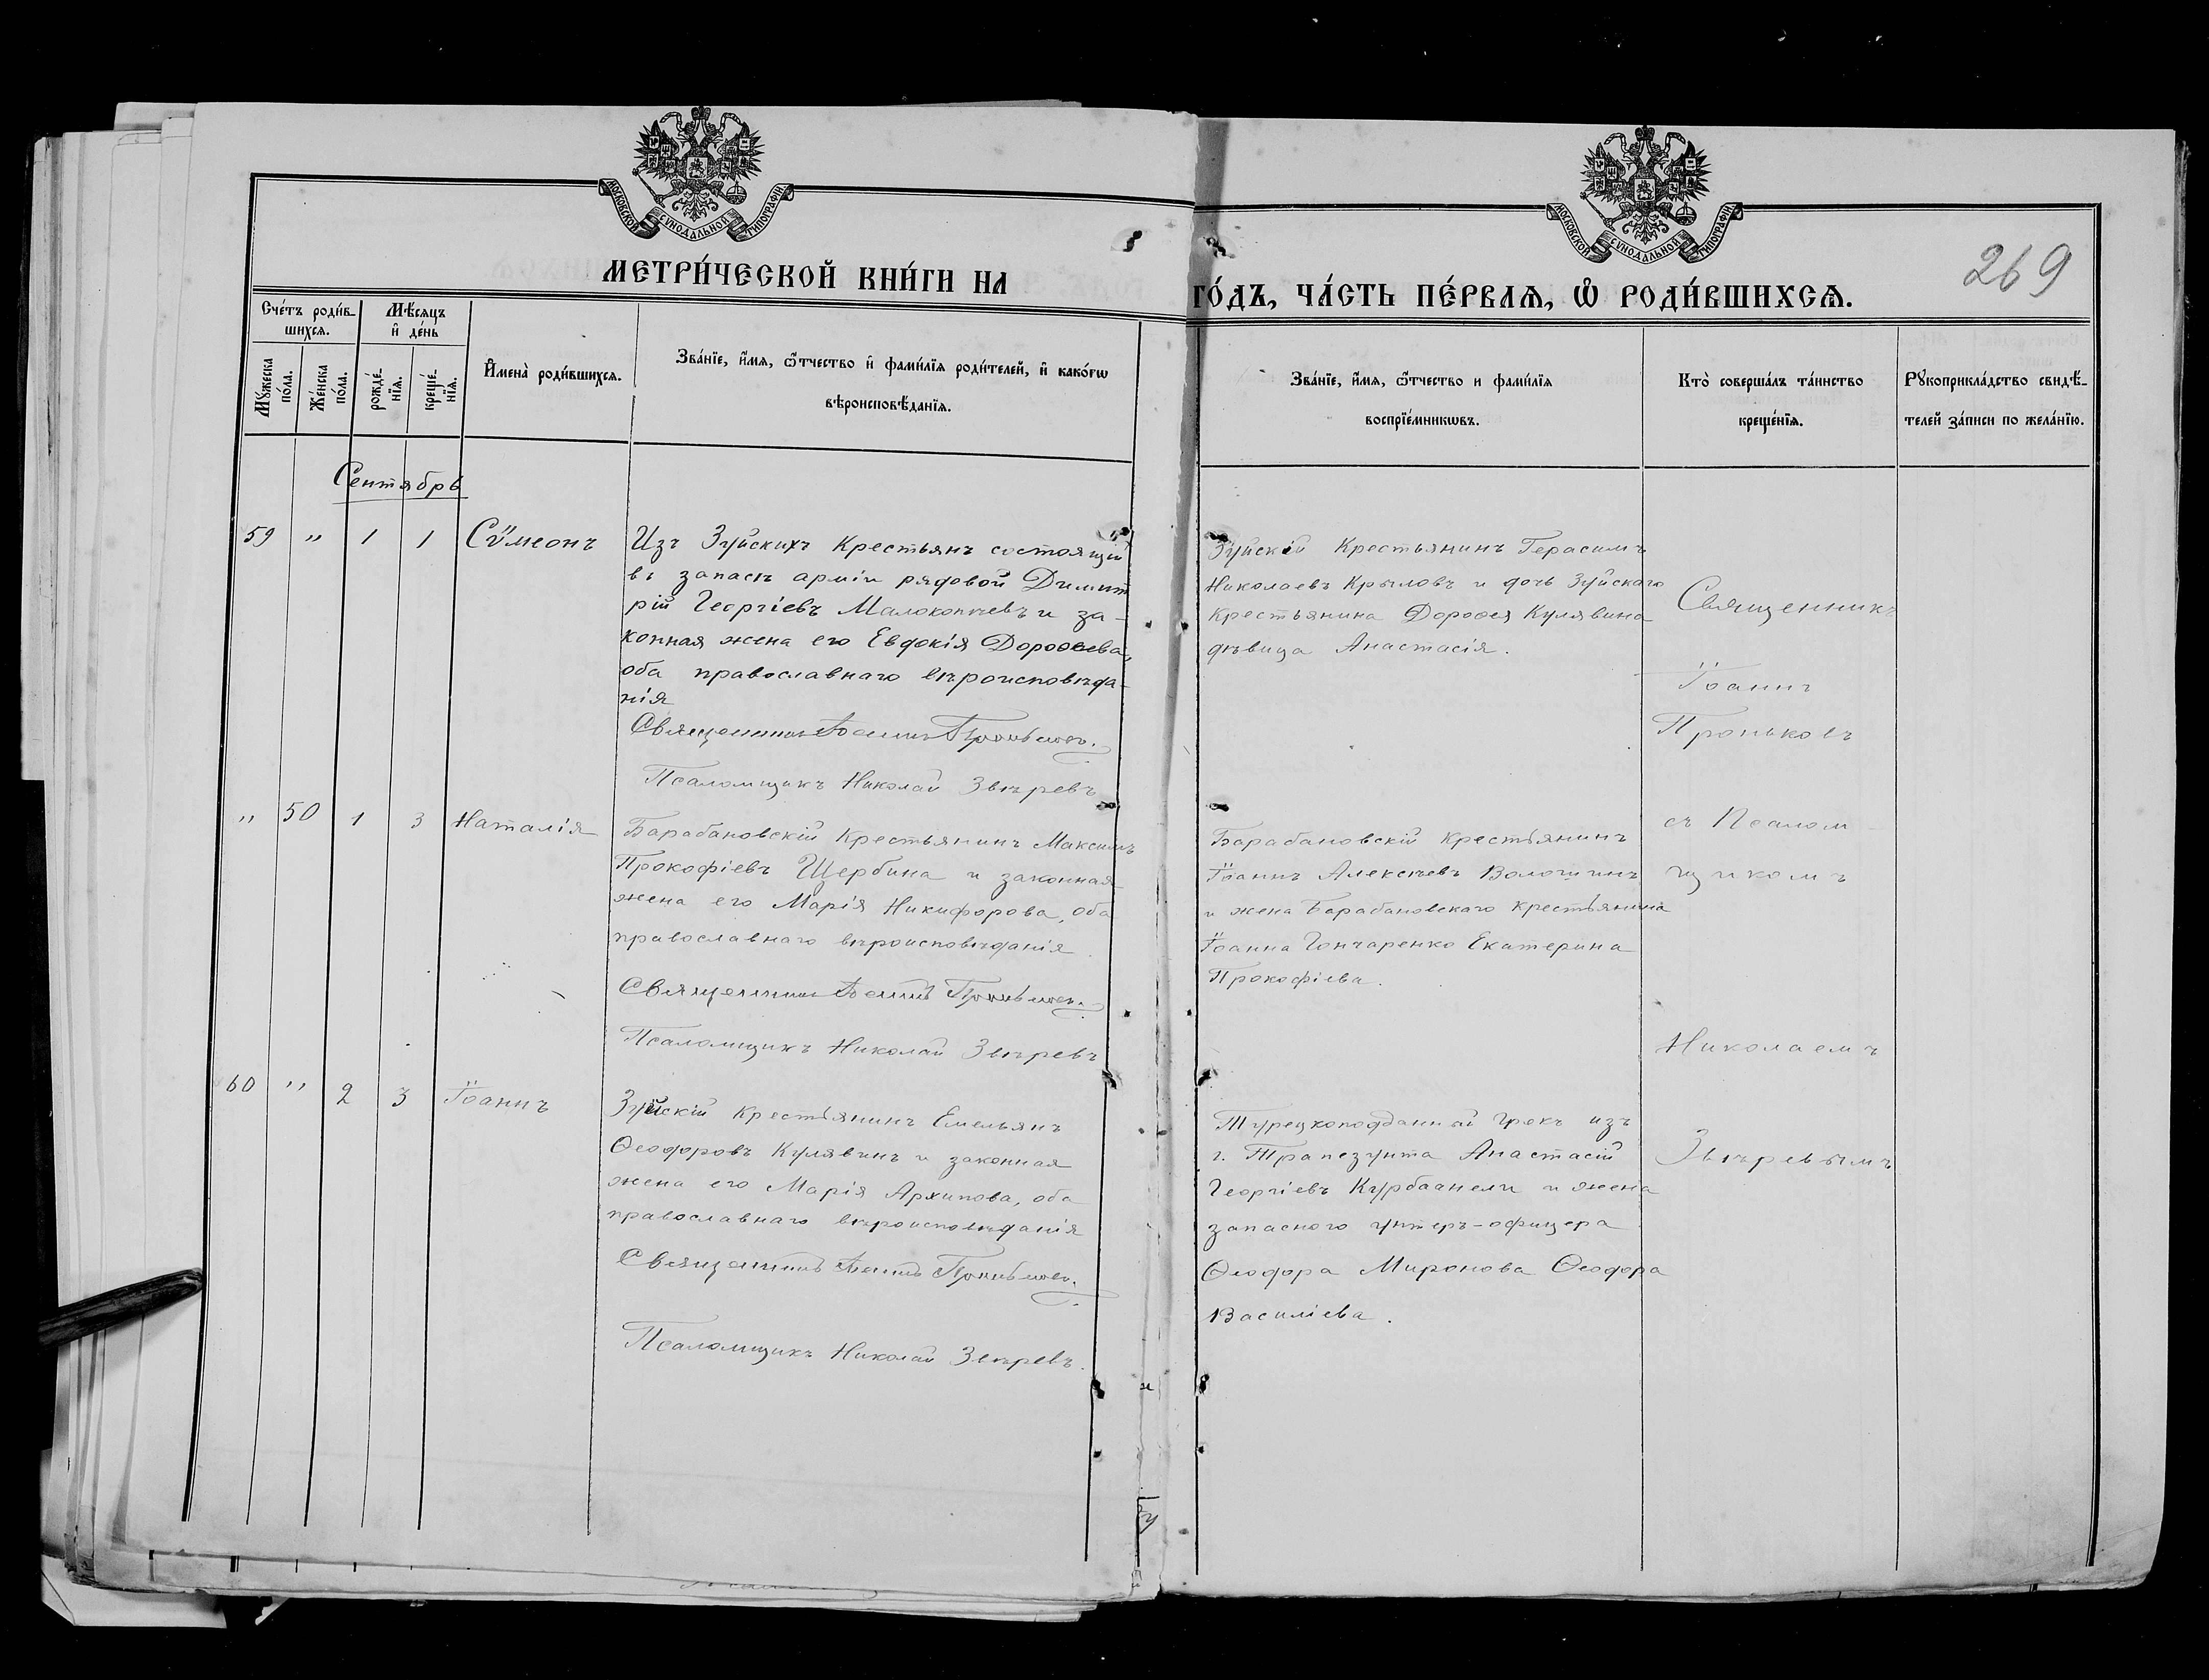 МОСКОВСКОЙ СУНОДАЛЬНОЙ ТИПОГРАФІИ
МОСКОВСКОЙ СУНОДАЛЬНОЙ ТИПОГРАФІИ
269
МЕТРИ́ЧЕСКОЙ КНИ́ГИ НА
ГО́ДЪ, ЧА́СТЬ ПЕ́РВАѦ, Ѡ҆ РОДИ́ВШИХСѦ.
Сче́тъ роди́в-
шихсѧ.
Мѣ́сѧцъ
и҆ де́нь
Мꙋ́жеска
по́ла.
Же́нска
по́ла.
рожде́-
нїѧ.
креще́-
нїѧ.
И҆мена̀ роди́вшихсѧ.
Зва́нїе, и҆́мѧ, ѻ҆́тчество и҆ фами́лїѧ роди́телей, и҆ како́гѡ
вѣроисповѣ́данїѧ.
Зва́нїе, и҆́мѧ, ѻ҆́тчество и фами́лїѧ
воспрїе́мникѡвъ.
Кто̀ соверша́лъ та́инство
креще́нїѧ.
Рꙋкоприкла́дство свидѣ́-
телей за́писи по жела́нїю.
Сентябрь
59 " 1 1 Сѵмеонъ
Изъ Зуйскихъ Крестьянъ состоящій
въ запасѣ арміи рядовой Димит
рій Георгіевъ Малокопчевъ и за-
конная жена его Евдокія Дороѳеева,
оба православнаго вѣроисповѣда-
нія
Священникъ Іоаннъ Проньковъ.
Псаломщикъ Николай Звѣревъ
Зуйскій Крестьянинъ Герасимъ
Николаевъ Крыловъ и дочь Зуйскаго
Крестьянина Дороѳея Кулявина
дѣвица Анастасія.
Священникъ
Іоаннъ
Проньковъ
" 50 1 3 Наталія
Барабановскій Крестьянинъ Максимъ
Прокофіевъ Щербина и законная
жена его Марія Никифорова, оба
православнаго вѣроисповѣданія
Священникъ Іоаннъ Проньковъ.
Псаломщикъ Николай Звѣревъ
Барабановскій крестьянинъ
Іоаннъ Алексѣевъ Волошинъ
и жена Барабановскаго крестьянина
Іоанна Гончаренко Екатерина
Прокофіева.
съ Псалом
щикомъ
Николаемъ
60 " 2 3 Іоаннъ
Зуйскій Крестьянинъ Емельянъ
Ѳеодоровъ Кулявинъ и законная
жена его Марія Архипова, оба
православнаго вѣроисповѣданія
Священникъ Іоаннъ Проньковъ.
Псаломщикъ Николай Звѣревъ.
Турецкоподданный грекъ изъ
г. Трапезунта Анастасій
Георгіевъ Курбаанели и жена
запаснаго унтеръ-офицера
Ѳеодора Миронова Ѳеодора
Василіева.
Звѣревымъ